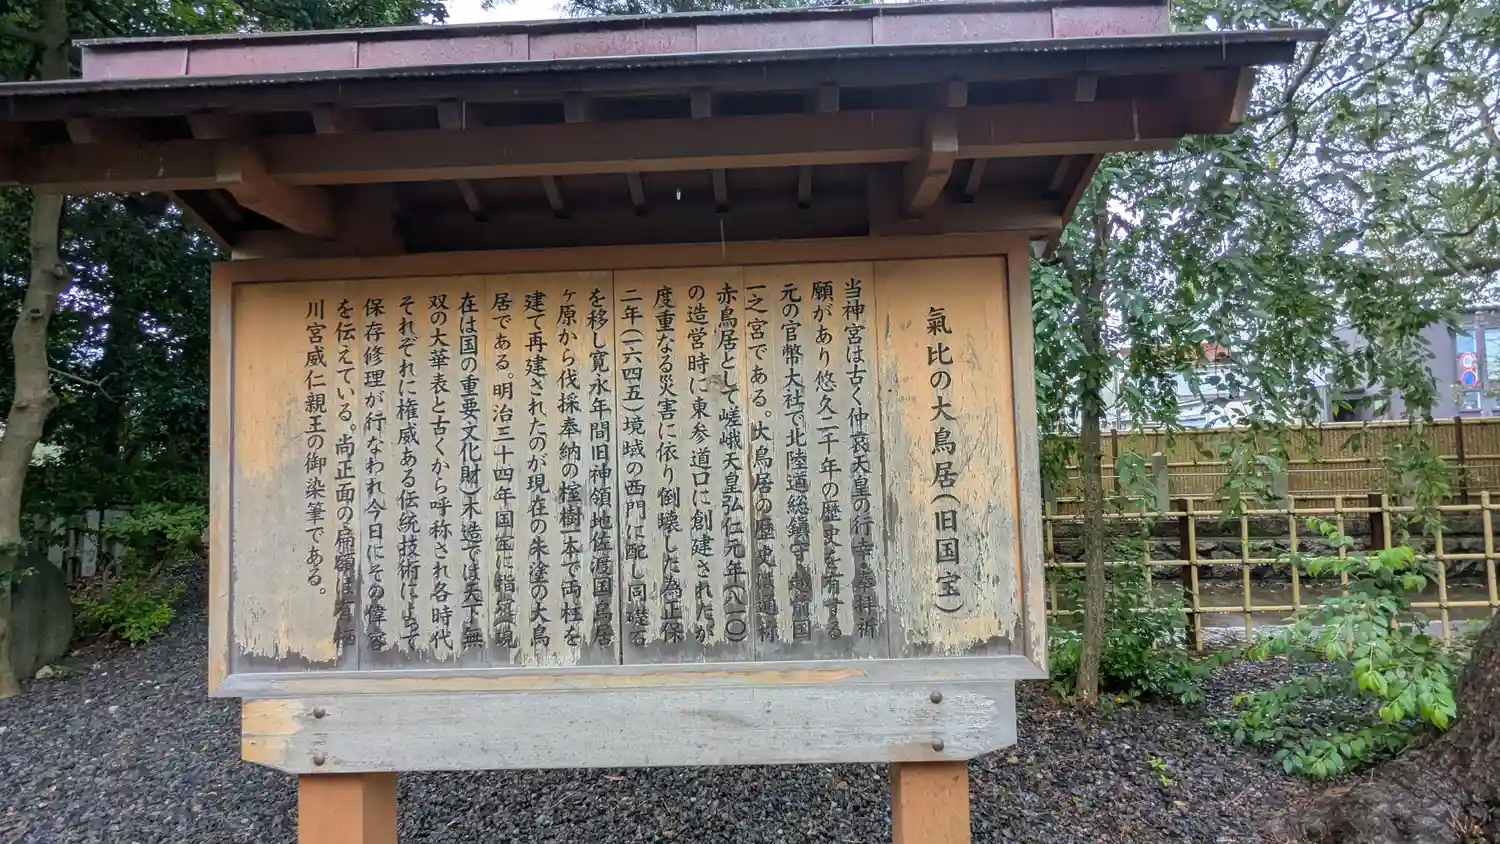 氣比の大鳥居(旧国宝)
当神宮は古く仲哀天皇の行幸・奉祥祈
願があり悠久二千年の歴史を有する
元の官幣大社で北陸道総鎮守越前国
一之宮である。大鳥居の歴史は通称
赤鳥居として嵯峨天皇弘仁元年(八一〇)
の造営時に東参道口に創建されたが
度重なる災害に依り倒壊した為正保
二年(一六四五)境域の西門に配し同礎石
を移し寛永年間旧神領地佐渡国鳥居
ヶ原から伐採奉納の榁樹一本で両柱を
建て再建されたのが現在の朱塗の大鳥
居である。明治三十四年国宝に指定(現
在は国の重要文化財)木造では天下無
双の大華表と古くから呼称され各時代
それぞれに権威ある伝統技術によって
保存修理が行なわれ今日にその偉容
を伝えている。尚正面の扁額は有栖
川宮威仁親王の御染筆である。